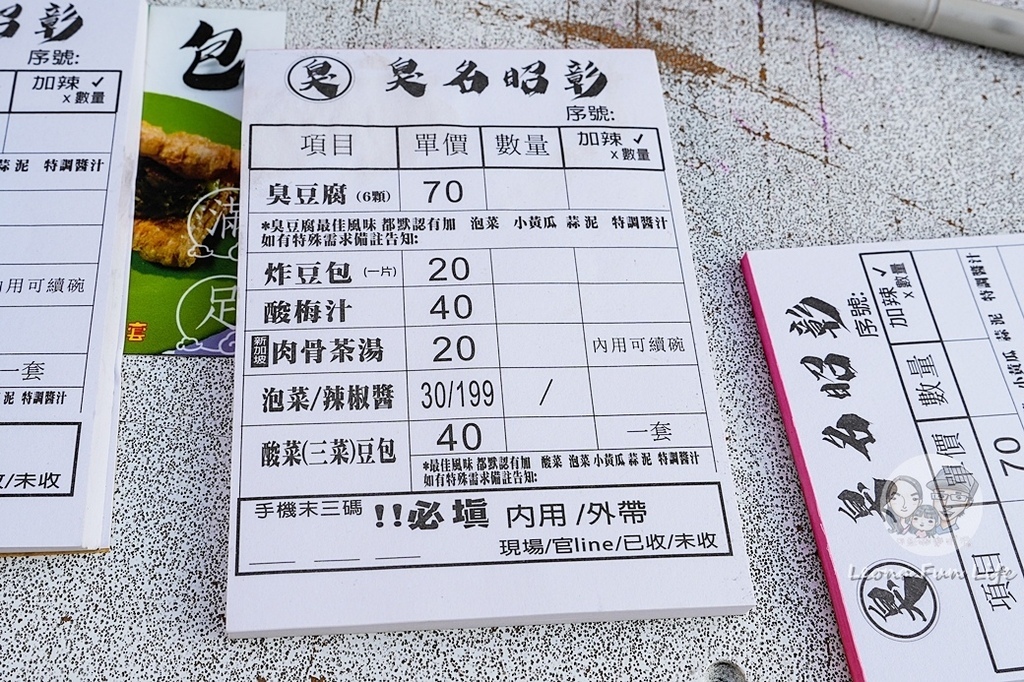 臭 臭名昭彰
序號:
項目 單價 數量 加辣 ✓
x數量
臭豆腐 (6顆) 70
*臭豆腐最佳風味 都默認有加 泡菜 小黃瓜 蒜泥 特調醬汁
如有特殊需求備註告知:
炸豆包 (一片) 20
酸梅汁 40
新加坡 肉骨茶湯 20 內用可續碗
泡菜/辣椒醬 30/199 /
酸菜(三菜)豆包 40 一套
*最佳風味 都默認有加 酸菜 泡菜 小黃瓜 蒜泥 特調醬汁
如有特殊需求備註告知:
手機末三碼 !!必填 內用/外帶
現場/官line/已收/未收
昭彰
序號:
加辣 ✓
x數量
蒜泥 特調醬汁
內用可續碗
一套
泥 特調醬汁
/未收
包
滿
足
套
臭 臭名昭彰
序號:
項目 單價 數量 加辣 ✓
x數量
70
小黃瓜 蒜泥 特調醬汁
Leona Fun Life